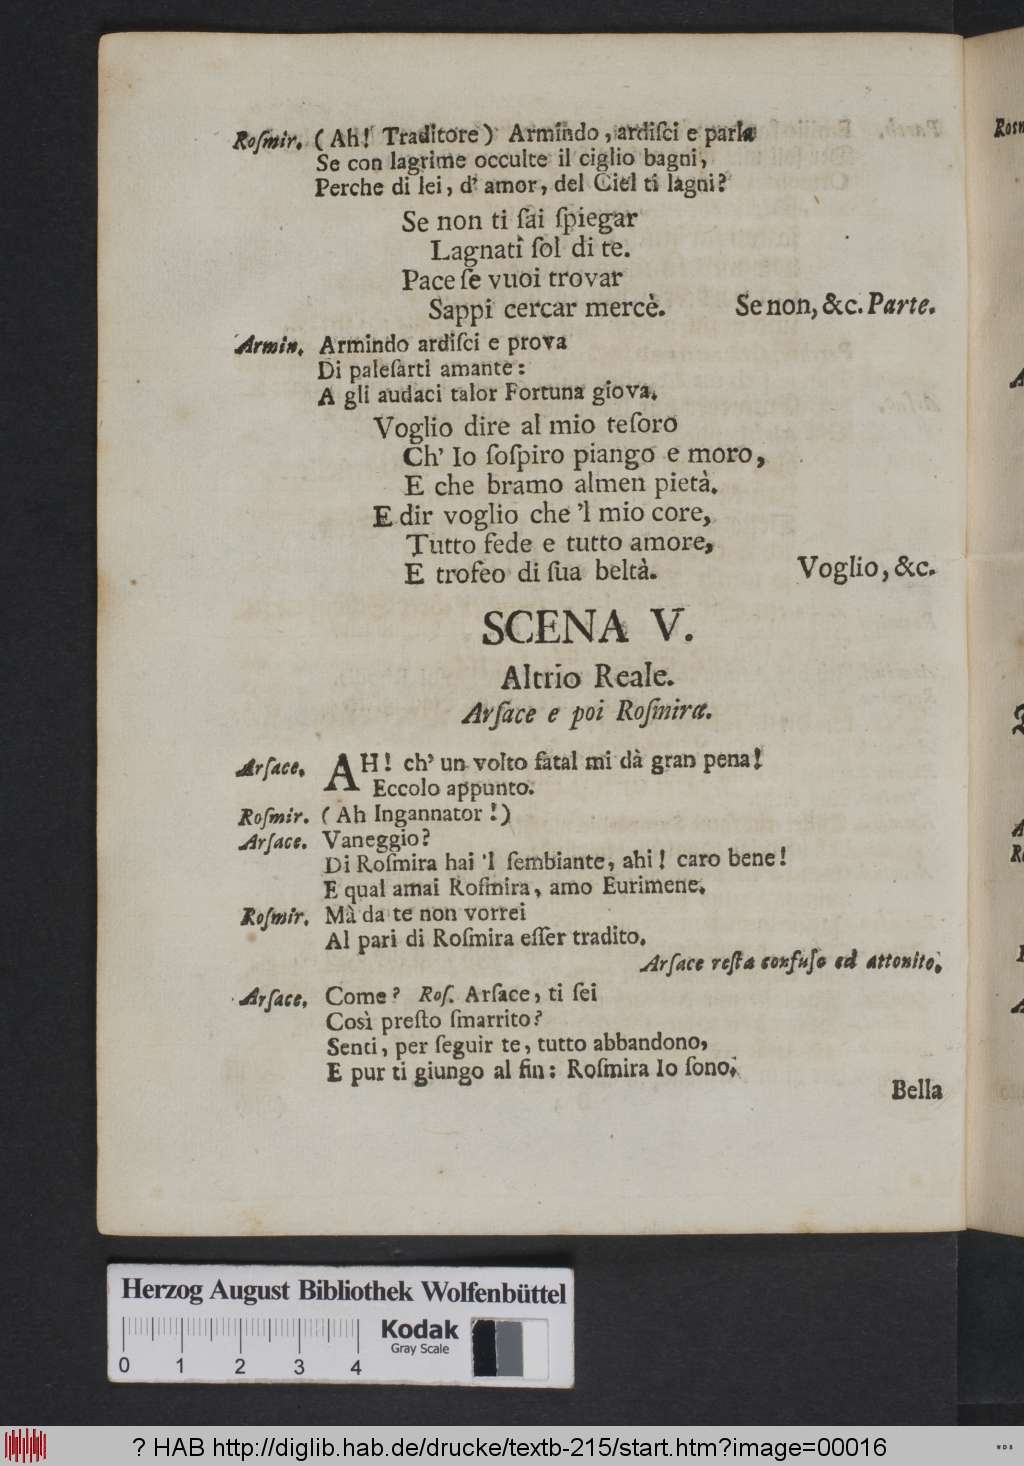 Roſmir. (Ah! Traditore) Armindo, ardiſci e parla
Se con lagrime occulte il ciglio bagni,
Perche di lei, d' amor, del Ciel ti lagni?
Se non ti ſai ſpiegar
Lagnati ſol di te.
Pace ſe vuoi trovar
Sappi cercar mercè. Se non, &c. Parte.
Armin. Armindo ardiſci e prova
Di paleſarti amante:
A gli audaci talor Fortuna giova.
Voglio dire al mio teſoro
Ch' Io ſoſpiro piango e moro,
E che bramo almen pietà.
E dir voglio che 'l mio core,
Tutto fede e tutto amore,
E trofeo di ſua beltà. Voglio, &c.
SCENA V.
Altrio Reale.
Arſace e poi Roſmira.
Arſace. AH! ch' un volto fatal mi dà gran pena!
Eccolo appunto.
Roſmir. (Ah Ingannator!)
Arſace. Vaneggio?
Di Roſmira hai 'l ſembiante, ahi! caro bene!
E qual amai Roſmira, amo Eurimene.
Roſmir. Mà da te non vorrei
Al pari di Roſmira eſſer tradito.
Arſace reſta confuſo ed attonito.
Arſace. Come? Roſ. Arſace, ti ſei
Così preſto ſmarrito?
Senti, per ſeguir te, tutto abbandono,
E pur ti giungo al fin: Roſmira Io ſono.
Bella
Herzog August Bibliothek Wolfenbüttel
Kodak
Gray Scale
0 1 2 3 4
? HAB http://diglib.hab.de/drucke/textb-215/start.htm?image=00016